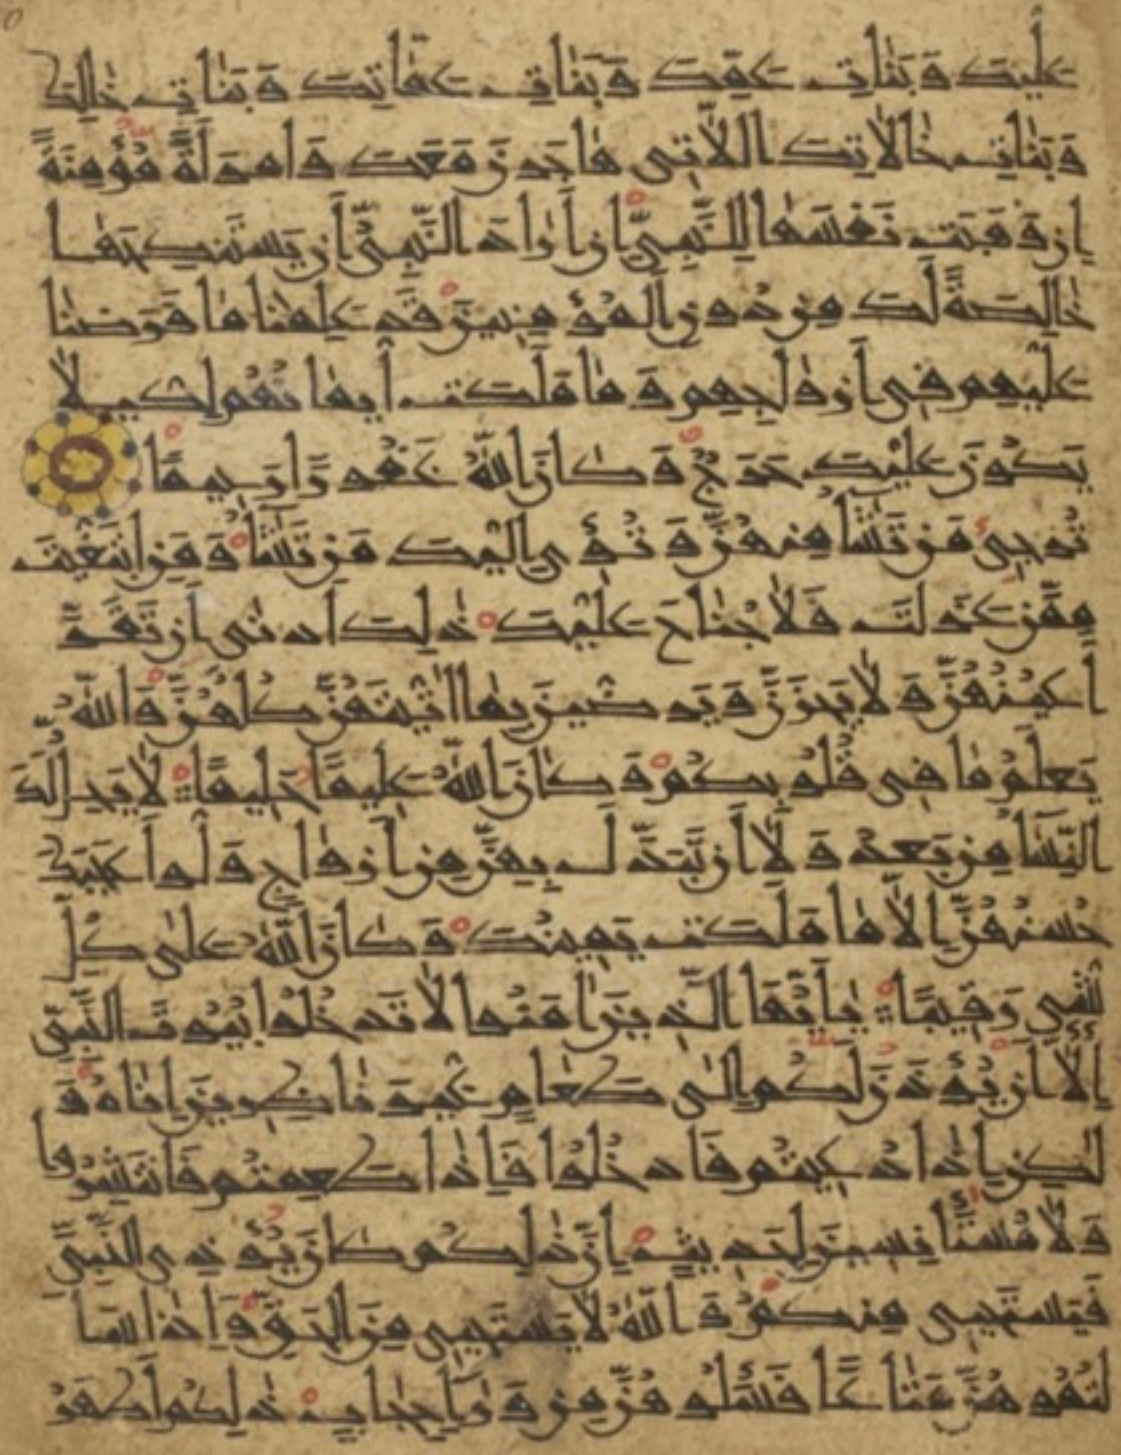 عَلَيْكَ وَبَنَاتِ عَمِّكَ وَبَنَاتِ عَمَّاتِكَ وَبَنَاتِ خَالِكَ
وَبَنَاتِ خَالَاتِكَ اللَّاتِي هَاجَرْنَ مَعَكَ وَامْرَأَةً مُؤْمِنَةً
إِنْ وَهَبَتْ نَفْسَهَا لِلنَّبِيِّ إِنْ أَرَادَ النَّبِيُّ أَنْ يَسْتَنْكِحَهَا
خَالِصَةً لَكَ مِنْ دُونِ الْمُؤْمِنِينَ قَدْ عَلِمْنَا مَا فَرَضْنَا
عَلَيْهِمْ فِي أَزْوَاجِهِمْ وَمَا مَلَكَتْ أَيْمَانُهُمْ لِكَيْلَا
يَكُونَ عَلَيْكَ حَرَجٌ وَكَانَ اللَّهُ غَفُورًا رَحِيمًا
تُرْجِئُ مَنْ تَشَا مِنْهُنَّ وَتُؤْي إِلَيْكَ مَنْ تَشَا وَمَنِ ابْتَغَيْتَ
مِمَّنْ عَزَلْتَ فَلَا جُنَاحَ عَلَيْكَ ذَلِكَ أَدْنَى أَنْ تَقَرَّ
أَعْيُنُهُنَّ وَلَا يَحْزَنَّ وَيَرْضَيْنَ بِمَا آتَيْتَهُنَّ كُلُّهُنَّ وَاللَّهُ
يَعْلَمُ مَا فِي قُلُوبِكُمْ وَكَانَ اللَّهُ عَلِيمًا حَلِيمًا لَا يَحِلُّ لَكَ
النِّسَا مِنْ بَعْدُ وَلَا أَنْ تَبَدَّلَ بِهِنَّ مِنْ أَزْوَاجٍ وَلَوْ أَعْجَبَكَ
حُسْنُهُنَّ إِلَّا مَا مَلَكَتْ يَمِينُكَ وَكَانَ اللَّهُ عَلَى كُلِّ
شَيْءٍ رَقِيبًا يَا أَيُّهَا الَّذِينَ آمَنُوا لَا تَدْخُلُوا بُيُوتَ النَّبِيِّ
إِلَّا أَنْ يُؤْذَنَ لَكُمْ إِلَى طَعَامٍ غَيْرَ نَاظِرِينَ إِنَاهُ وَ
لَكِنْ إِذَا دُعِيتُمْ فَادْخُلُوا فَإِذَا طَعِمْتُمْ فَانْتَشِرُوا
وَلَا مُسْتَأْنِسِينَ لِحَدِيثٍ إِنَّ ذَلِكُمْ كَانَ يُؤْذِي النَّبِيَّ
فَيَسْتَحْيِي مِنْكُمْ وَاللَّهُ لَا يَسْتَحْيِي مِنَ الْحَقِّ وَإِذَا سَأَ
لْتُمُوهُنَّ مَتَاعًا فَسْئَلُوهُنَّ مِنْ وَرَا حِجَابٍ ذَلِكُمْ أَطْهَرُ